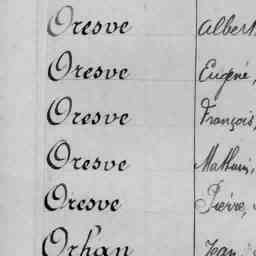 Oresve Albert
Oresve Eugéné,
Oresve François,
Oresve Mathurin,
Oresve Pierre,
Orhan Jean